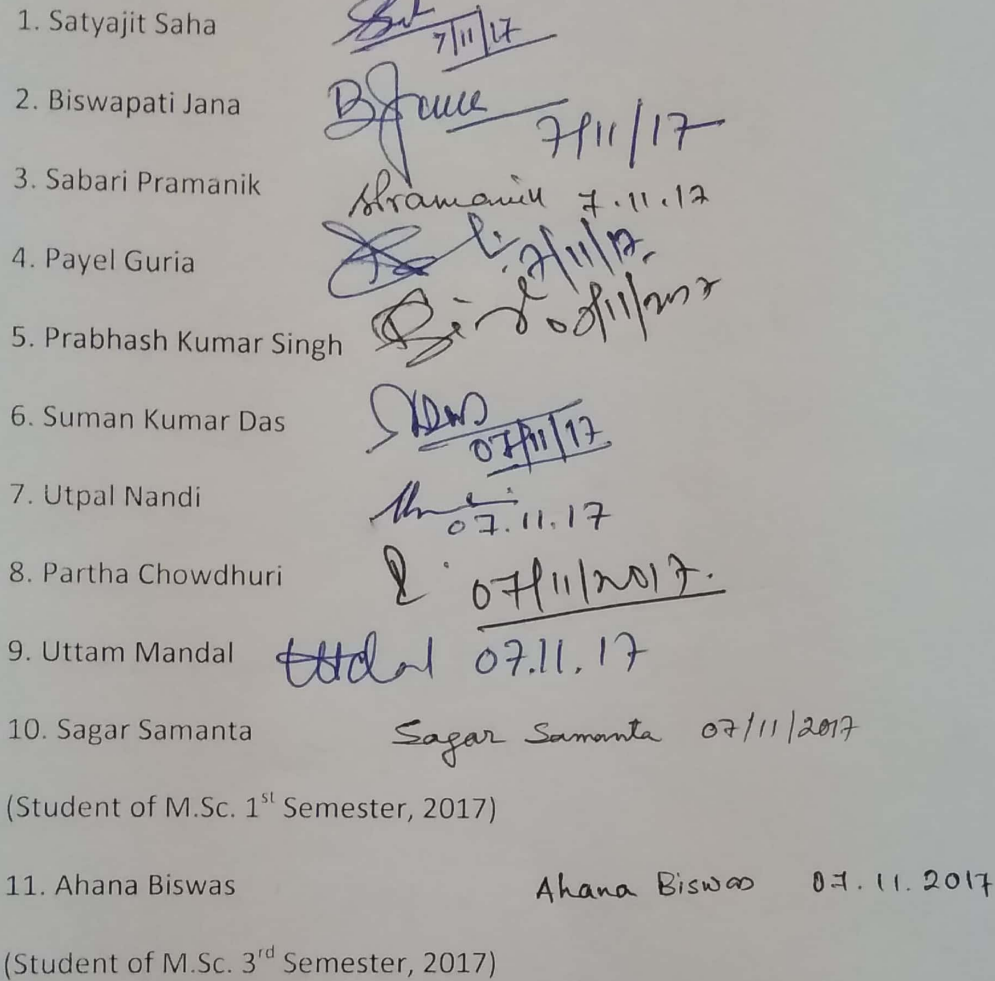 1. Satyajit Saha 7/11/17
2. Biswapati Jana BJana 7/11/17
3. Sabari Pramanik SPramanik 7.11.17
4. Payel Guria 7/11/17.
5. Prabhash Kumar Singh
6. Suman Kumar Das SDas 07/11/17
7. Utpal Nandi 07.11.17
8. Partha Chowdhuri 07/11/2017.
9. Uttam Mandal 07.11.17
10. Sagar Samanta Sagar Samanta 07/11/2017
(Student of M.Sc. 1st Semester, 2017)
11. Ahana Biswas Ahana Biswas 07.11.2017
(Student of M.Sc. 3rd Semester, 2017)